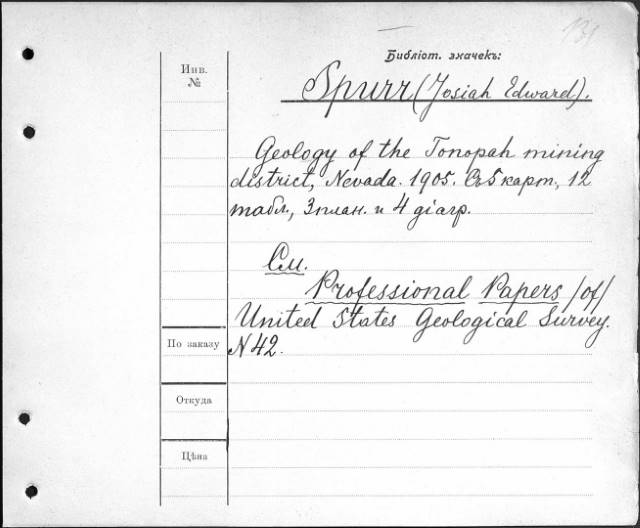 131
Библіот. значекъ:
Инв.
№
Spurr (Josiah Edward).
Geology of the Tonopah mining
district, Nevada. 1905. Съ 5 карт., 12
табл., 3 план. и 4 діагр.
См.
Professional Papers /of/
United States Geological Survey.
N 42.
По заказу
Откуда
Цѣна